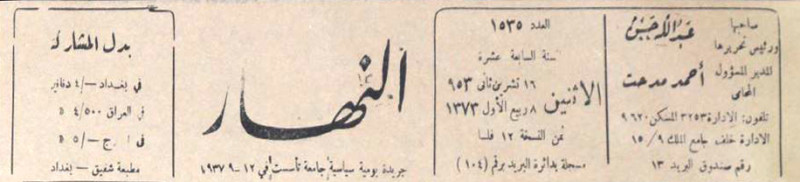 صاحبها
ورئيس تحريرها
عبدالله حسن
المدير المسؤول
المحامي
أحمد مدحت
تلفون: الادارة ٣٢٥٣ المسكن ٩٦٢٠
الادارة خلف جامع الملك ١٥٠/٩
رقم صندوق البريد ١٣
العدد ١٥٣٥
سنة السابعة عشرة
الاثنين
١٦ تشرين ثانى ٩٥٣
٨ ربيع الأول ١٣٧٣
ثمن النسخة ١٢ فلسا
مسجلة بدائرة البريد برقم (١٠٤)
النهار
جريدة يومية سياسية جامعة تأسست في ١٢-٩-١٩٣٧
بدل المشاركة
في بغداد -/٤ دنانير
في العراق ٤/٥٠٠
في -/٥
مطبعة شفيق - بغداد